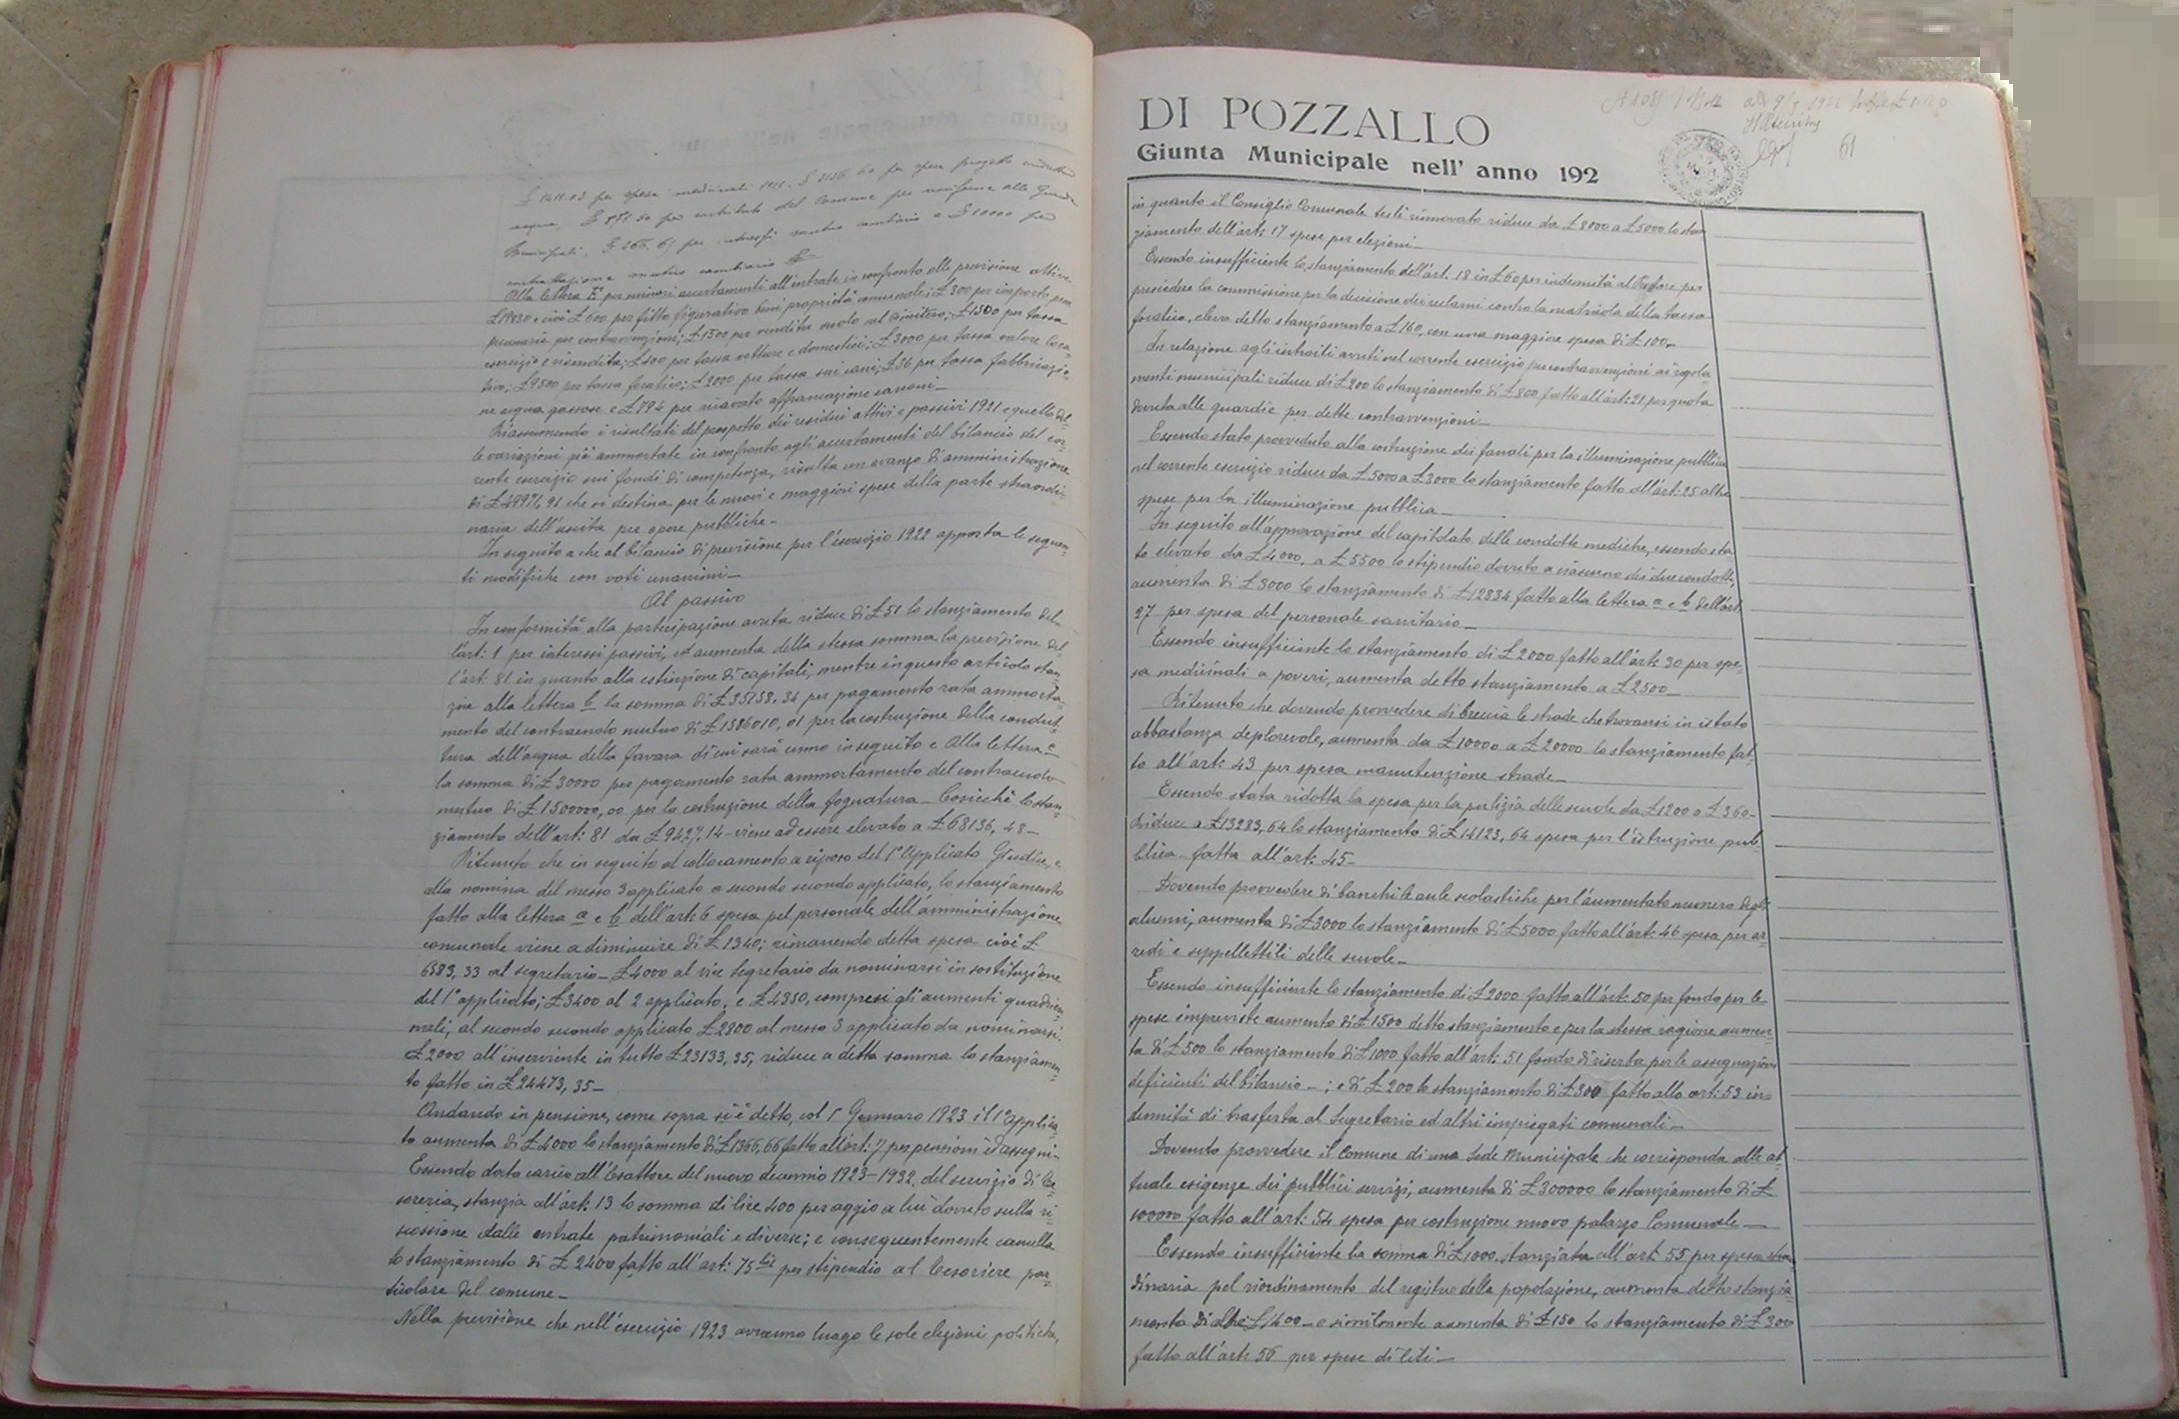 £ 1411.03 per spese medicinali 1921. £ 2126.60 per spese progetto conduttura
acqua, £ 871.50 per contributo del Comune per uniforme alle Guardie
Municipali, £ 266.65 per interessi mutuo cambiario e £ 10000 per
contrattazione mutuo cambiario
Alla lettera E per minori accertamenti all'entrate in confronto alle previsione attive
£ 19830 e cioè £ 600 per fitto figurativo beni proprietà comunale; £ 300 per importo pene
pecuniarie per contravvenzioni; £ 1500 per vendita suolo al Cimitero; £ 1500 per tassa
esercizio e rivendita; £ 400 per tassa vetture e domestici; £ 3000 per tassa valore loca-
tivo; £ 9500 per tassa focatico; £ 2000 per tassa sui cani; £ 36 per tassa fabbricazio-
ne acqua gassose e £ 794 per ricavato affrancazione canoni-
Riassumendo i risultati del prospetto dei residui attivi e passivi 1921 e quello del-
le variazioni più ammortate in confronto agli accertamenti del bilancio del cor-
rente esercizio sui fondi di competenza, risulta un avanzo di amministrazione
di £ 49971,91 che si destina per le nuovi e maggiori spese della parte straordi-
naria dell'uscita per opere pubbliche-
In seguito a che al bilancio di previsione per l'esercizio 1922 apporta le seguen-
ti modifiche con voti unanimi-
Al passivo
In conformità alla partecipazione avuta riduce di £ 51 lo stanziamento del-
l'art: 1 per interessi passivi, ed aumenta della stessa somma la previsione del-
l'art: 81 in quanto alla estinzione di capitali, mentre in questo articolo stan-
zia alla lettera b la somma di £ 35758,34 per pagamento rata ammorta-
mento del contraendo mutuo di £ 1386010,01 per la costruzione della condut-
tura dell'acqua della Favara di cui sarà cenno in seguito e alla lettera c
la somma di £ 30000 per pagamento rata ammortamento del contraendo
mutuo di £ 1500000,00 per la costruzione della fognatura- Cosicchè lo stan-
ziamento dell'art: 81 da £ 9427,14- viene ad essere elevato a £ 68136,48-
Ritenuto che in seguito al collocamento a riposo del 1° Applicato Giudice, e
alla nomina del messo 3 applicato a secondo secondo applicato, lo stanziamento
fatto alla lettera a e b dell'art: 6 spesa pel personale dell'amministrazione
comunale viene a diminuire di £ 1340; rimanendo detta spesa cioè £
6583,33 al segretario- £ 4000 al vice Segretario da nominarsi in sostituzione
del 1° applicato; £ 3400 al 2 applicato, e £ 4350, compresi gli aumenti quadrien-
nali, al secondo secondo applicato £ 2800 al messo 3 applicato da nominarsi.
£ 2000 all'inserviente in tutto £ 23133,35, riduce a detta somma lo stanziamen-
to fatto in £ 24473,35-
Andando in pensione, come sopra si è detto, col 1° Gennaro 1923 il 1° applica-
to aumenta di £ 4000 lo stanziamento di £ 1366,66 fatto all'art: 7 per pensioni ed assegni-
Essendo dato carico all'Esattore del nuovo decennio 1923-1932, del servizio di te-
soreria, stanzia all'art: 13 la somma di lire 400 per aggio a lui dovuto sulla ri-
scossione dalle entrate patrimoniali e diverse; e conseguentemente cancella
lo stanziamento di £ 2400 fatto all'art: 75 bis per stipendio al tesoriere par-
ticolare del comune-
Nella previsione che nell'esercizio 1923 avranno luogo le sole elezioni politiche,
DI POZZALLO
Giunta Municipale nell' anno 192
61
in quanto il Consiglio Comunale testè rinnovato riduce da £ 8000 a £ 5000 lo stan-
ziamento dell'art: 17 spese per elezioni-
Essendo insufficiente lo stanziamento dell'art. 18 in £ 60 per indennità al Pretore per
presiedere la commissione per la decisione dei reclami contro la matricola della tassa
focatico, eleva detto stanziamento a £ 160, con una maggiore spesa di £ 100-
In relazione agli introiti avuti nel corrente esercizio per contravvenzioni ai regola-
menti municipali riduce di £ 200 lo stanziamento di £ 800 fatto all'art: 21 per quota
dovuta alle guardie per dette contravvenzioni-
Essendo stato provveduto alla costruzione dei fanali per la illuminazione pubblica
nel corrente esercizio riduce da £ 5000 a £ 3000 lo stanziamento fatto all'art: 25 altre
spese per la illuminazione pubblica-
In seguito all'approvazione del capitolato delle condotte mediche, essendo sta-
to elevato da £ 4000, a £ 5500 lo stipendio dovuto a ciascuno dei due condotti,
aumenta di £ 3000 lo stanziamento di £ 12834 fatto alla lettera a e b dell'art:
27 per spesa del personale sanitario-
Essendo insufficiente lo stanziamento di £ 2000 fatto all'art: 30 per spe-
sa medicinali a poveri, aumenta detto stanziamento a £ 2500-
Ritenuto che dovendo provvedere di breccia le strade che trovansi in istato
abbastanza deplorevole, aumenta da £ 10000 a £ 20000 lo stanziamento fat-
to all'art: 43 per spesa manutenzione strade-
Essendo stata ridotta la spesa per la pulizia delle scuole da £ 1200 a £ 360-
Riduce a £ 13283,64 lo stanziamento di £ 14123,64 spesa per l'istruzione pub-
blica- fatta all'art: 45-
Dovendo provvedere di banchi le aule scolastiche per l'aumentato numero degli
alunni, aumenta di £ 3000 lo stanziamento di £ 5000 fatto all'art: 46 spesa per ar-
redi e suppellettili delle scuole-
Essendo insufficiente lo stanziamento di £ 2000 fatto all'art: 50 per fondo per le
spese impreviste aumenta di £ 1500 detto stanziamento e per la stessa ragione aumen-
ta di £ 500 lo stanziamento di £ 1000 fatto all'art: 51 fondo di riserva per le assegnazioni
deficienti del bilancio-; e di £ 200 lo stanziamento di £ 300 fatto allo art: 53 in-
dennità di trasferta al Segretario ed altri impiegati comunali-
Dovendo provvedere il Comune di una Sede Municipale che corrisponda alle at-
tuale esigenze dei pubblici servizi, aumenta di £ 300000 lo stanziamento di £
100000 fatto all'art: 54 spesa per costruzione nuovo palazzo Comunale-
Essendo insufficiente la somma di £ 1000 stanziata all'art: 55 per spesa straor-
dinaria pel riordinamento del registro della popolazione, aumenta detto stanzia-
mento di altre £ 1400- e similmente aumenta di £ 150 lo stanziamento di £ 300
fatto all'art: 56 per spese di liti-